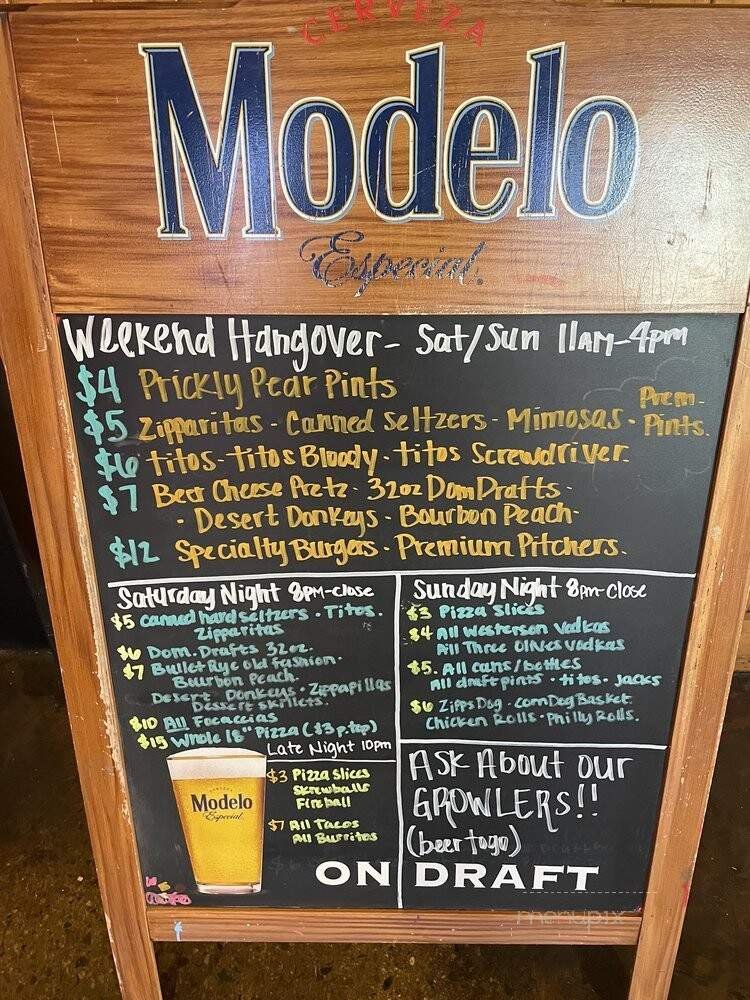 CERVEZA
Modelo
Especial.
Weekend Hangover - Sat/Sun 11AM-4pm
$4 Prickly Pear Pints
$5 Zipparitas - Canned Seltzers - Mimosas - Prem. Pints.
$6 titos - titos Bloody - titos Screwdriver.
$7 Beer Cheese Pretz - 32oz Dom Drafts -
• Desert Donkeys - Bourbon Peach -
$12 Specialty Burgers - Premium Pitchers.
Saturday Night 8PM-close
$5 canned hard seltzers • Titos.
Zipparitas
$6 Dom. Drafts 32oz.
$7 Bullet Rye old fashion.
Bourbon Peach.
Desert Donkeys • Zippapillas
Dessert skillets.
$10 All Focaccias
$15 Whole 18" Pizza ($3 p.top)
Late Night 10pm
$3 Pizza Slices
Skrewballs
Fireball
$7 All Tacos
All Burritos
Sunday Night 8pm-close
$3 Pizza Slices
$4 All Westerson Vodkas
All Three Olives Vodkas
$5. All cans/bottles
All draft pints • titos • Jacks
$6 Zipps Dog • Corn Dog Basket
Chicken Rolls • Philly Rolls.
Ask About our
GROWLERS!!
(beer to go)
Modelo
Especial
ON DRAFT
menupix